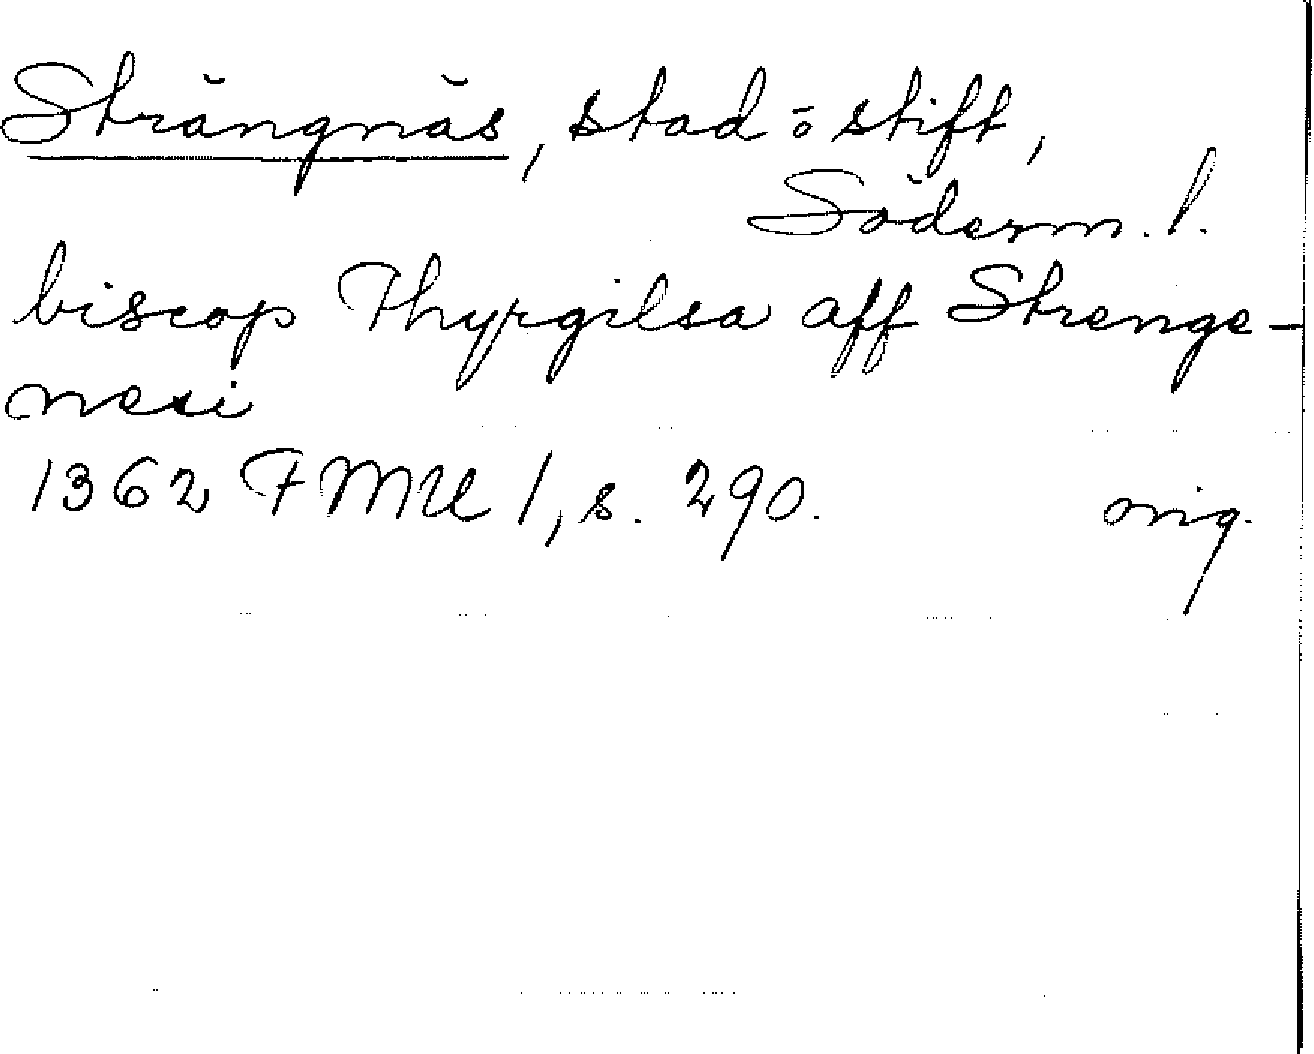 Strängnäs, stad ö stift,
Söderm. l.
biscop Thyrgilsa aff Strenge-
nesi
1362 FMU 1, s. 290. orig.